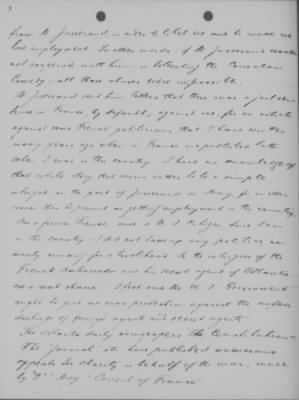 3
from M. Jusserand, in order to libel me and to make me
lose employment. In other words, if M. Jusserand would
not cooperate with him in tolerating the Consular
Comedy all those abuses were impossible.
M. Jusserand sent him letters that there was a jail sen-
tence in France, by default, against me, for an article
against some French politicians, that I have written
many years ago when in France and published
when I was in the country. I have no knowledge of
that whole story that seems rather to be a simple
intrigue on the part of Jusserand or May, for no other
reason than to prevent me getting employment in the country
in the country. I did not any politics, am
merely working for a livelihood. So the intrigues of the
French Ambassador and his secret agent of Atlanta
are a real shame. I feel sure the U. S. Government
ought to give me some protection against the unfair
dealings of foreign agents and secret agents.
The Atlanta daily newspapers "The Constitution"
The "Journal" etc have published numerous
appeals for charity in behalf of the war, made
by "Dr" May "Consul of France"